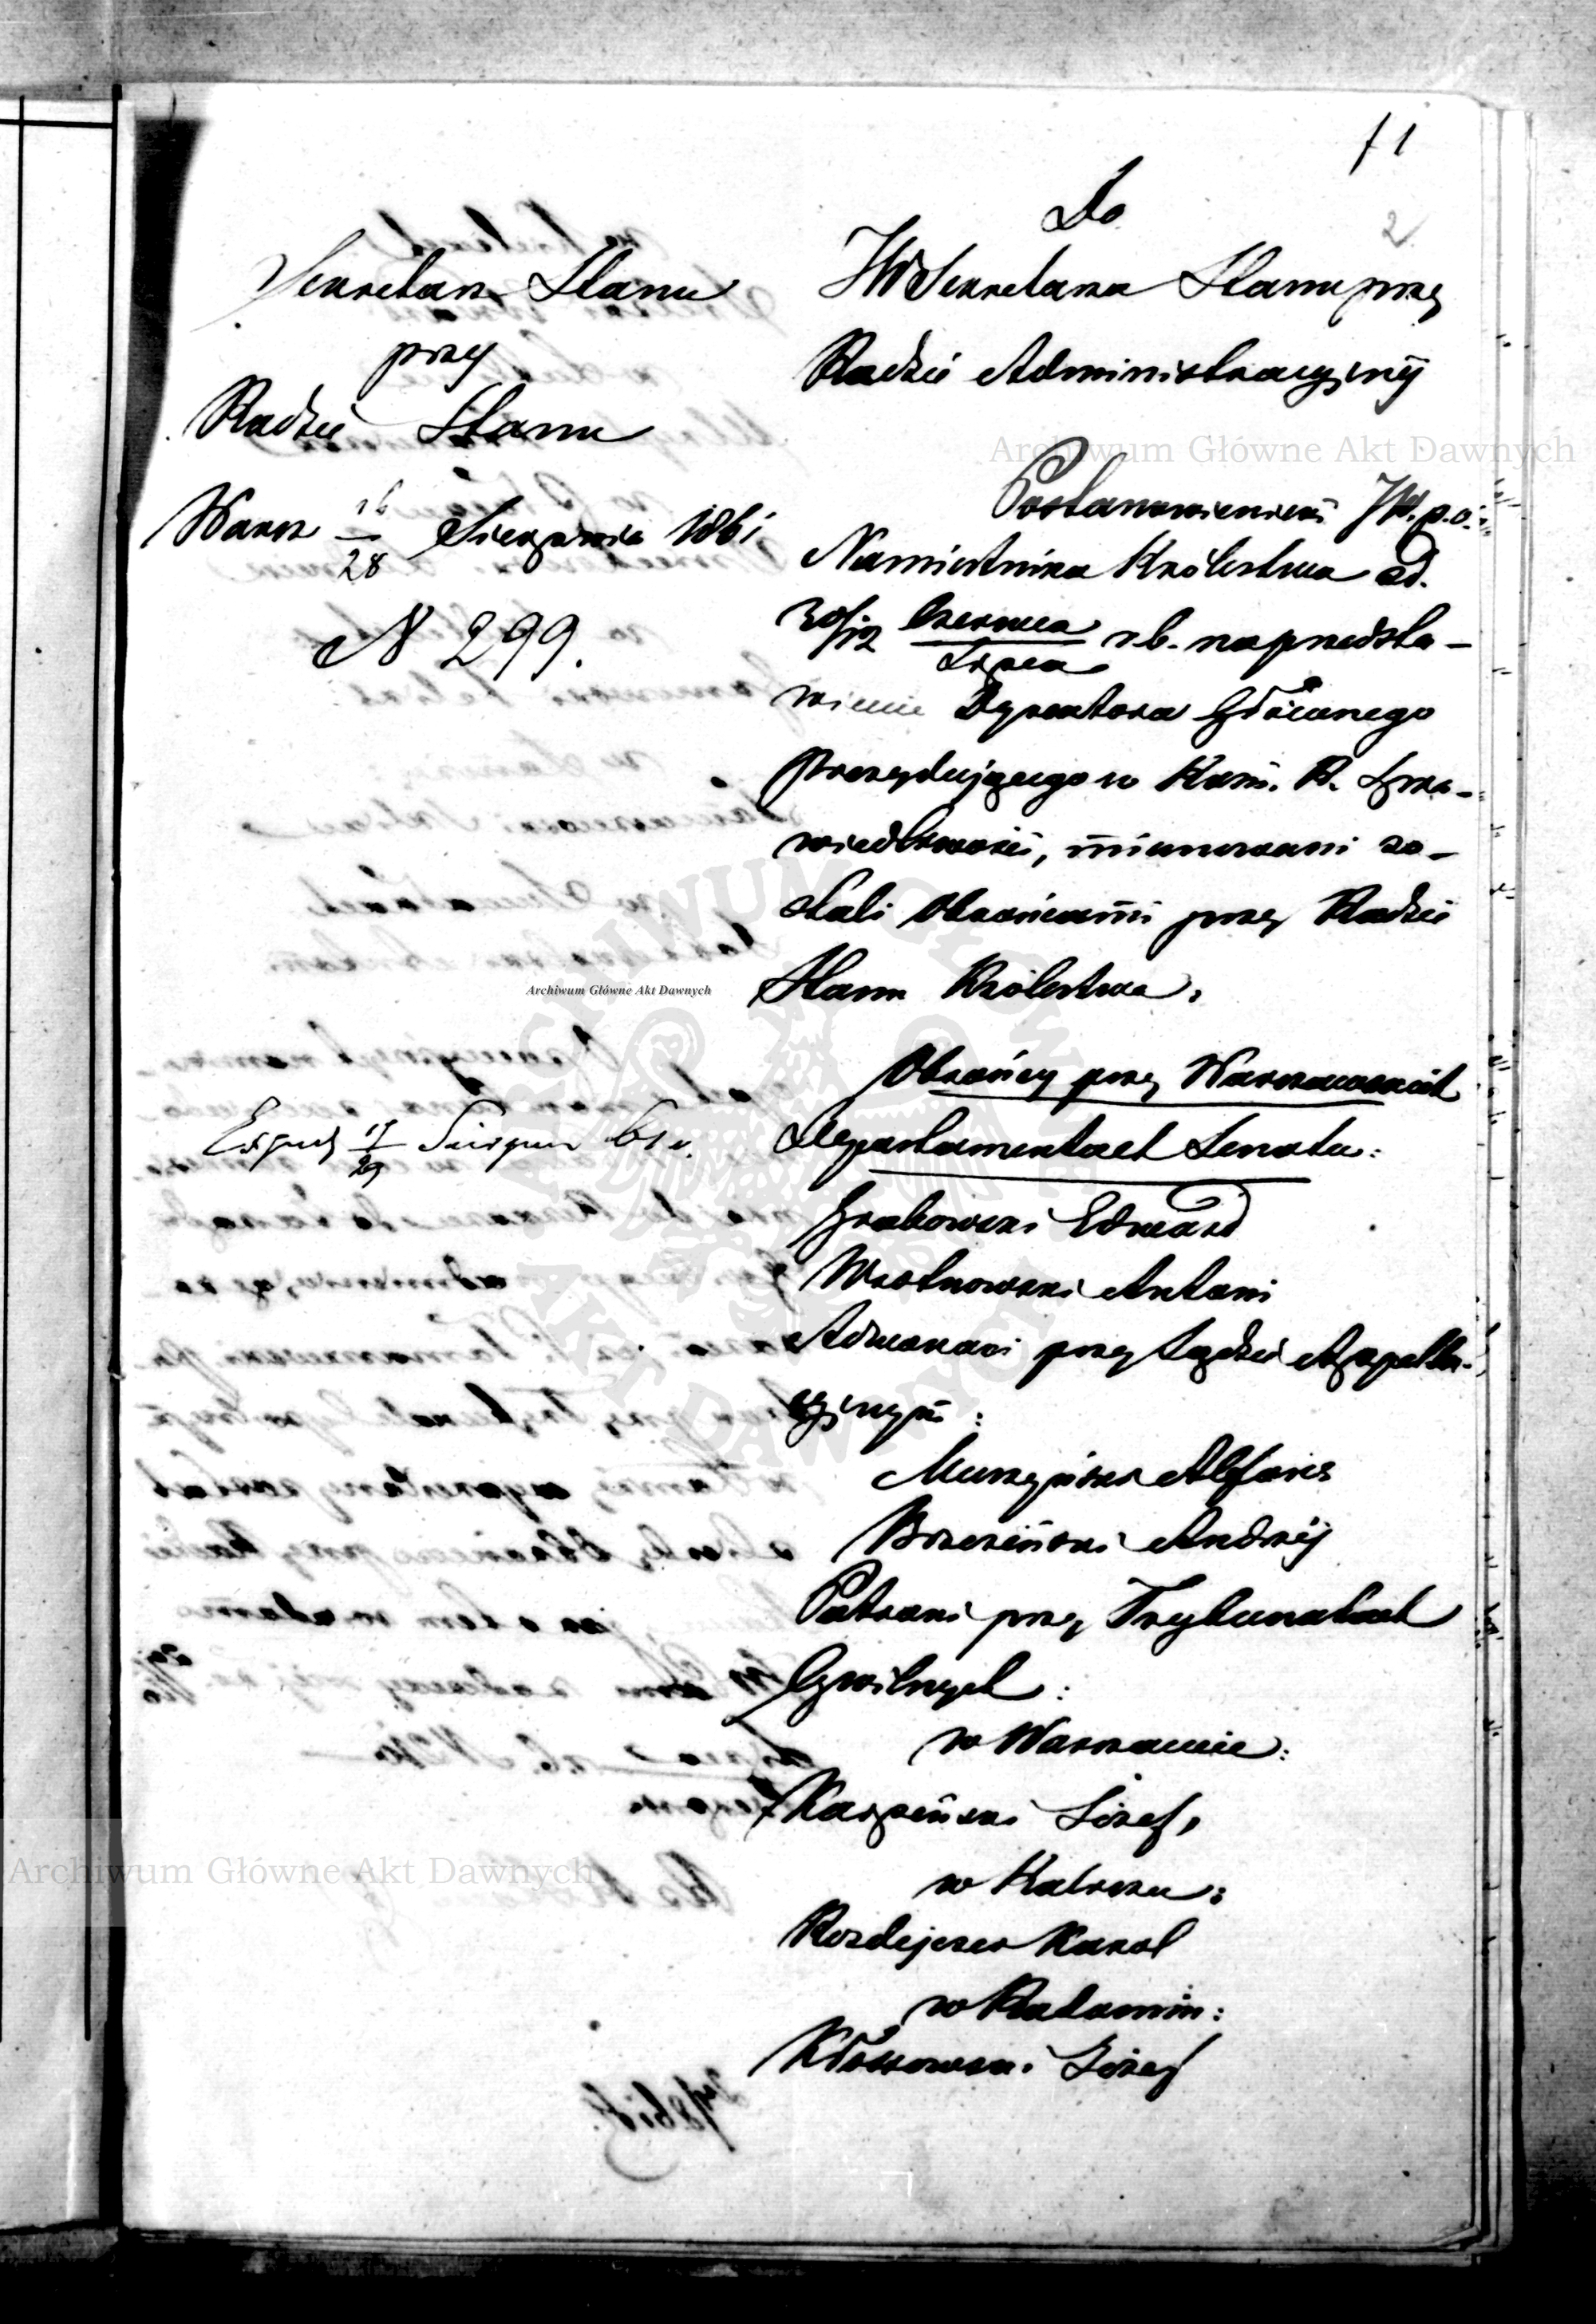 71
2
Sekretarz Stanu
przy
Radzie Stanu
Warsz 16/28 Sierpnia 1861
N 299.
Exped 17/29 Sierpnia 61 r.
Do
JW Sekretarza Stanu przy
Radzie Administracyjnéj
Postanowieniem JW. p. o.
Namiestnika Królestwa z d.
30/12 Czerwca/Lipca r. b. na przedsta-
wienie Dyrektora Głównego
Prezydującego w Kom. R. Spra-
wiedliwości, mianowani zo-
stali Obrońcami przy Radzie
Stanu Królestwa:
Obrońcy przy Warszawskich
Departamentach Senatu:
Grabowski Edward
Wrotnowski Antoni
Adwokaci przy Sądzie Appella-
cyjnym:
Brzeziński Andrzéj
Patroni przy Trybunałach
Cywilnych:
w Warszawie:
Karpiński Józef,
w Kaliszu:
Karol
w Radomiu:
Kłossowski Józef
Archiwum Główne Akt Dawnych
Archiwum Główne Akt Dawnych
Archiwum Główne Akt Dawnych
ARCHIWUM GŁÓWNE AKT DAWNYCH